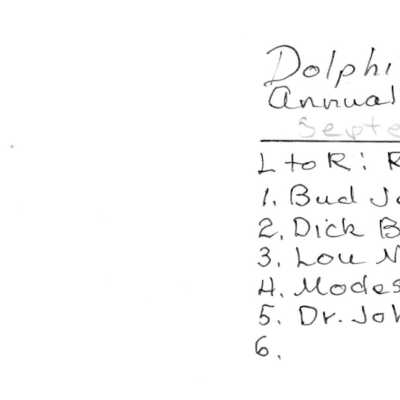 Dolphi
Annual
Septe
L to R: R
1. Bud Jo
2. Dick B
3. Lou N
4. Modes
5. Dr. Joh
6.